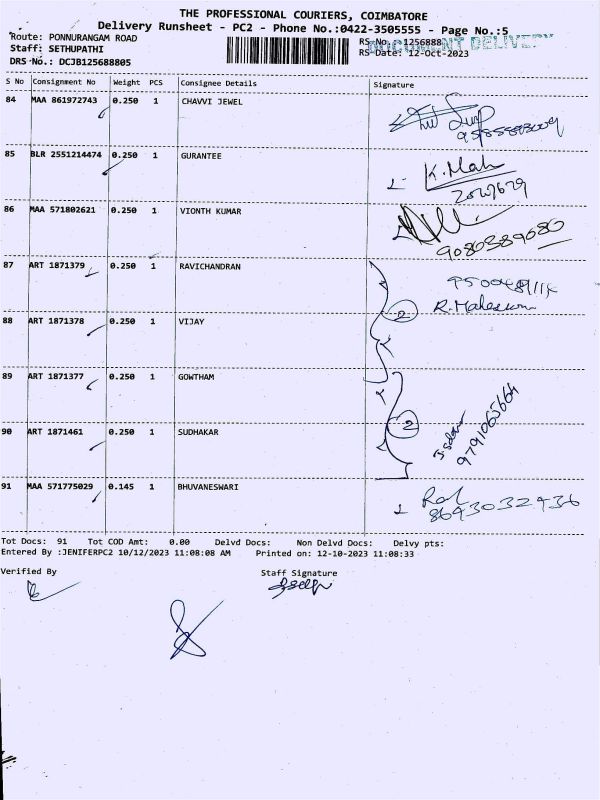 THE PROFESSIONAL COURIERS, COIMBATORE
Delivery Runsheet - PC2 - Phone No.:0422-3505555 - Page No.:5
Route: PONNURANGAM ROAD
Staff: SETHUPATHI
DRS No.: DCJB125688805
RS-No. :1256888
DOCUMENT DELIVERY
RS-Date: 12-Oct-2023
S No Consignment No Weight PCS Consignee Details Signature
84 MAA 861972743 0.250 1 CHAVVI JEWEL
85 BLR 2551214474 0.250 1 GURANTEE
K.Mah
86 MAA 571802621 0.250 1 VIONTH KUMAR
9080389080
87 ART 1871379 0.250 1 RAVICHANDRAN
88 ART 1871378 0.250 1 VIJAY
2
89 ART 1871377 0.250 1 GOWTHAM
90 ART 1871461 0.250 1 SUDHAKAR
2
9791065664
91 MAA 571775029 0.145 1 BHUVANESWARI
8643032436
Tot Docs: 91 Tot COD Amt: 0.00 Delvd Docs: Non Delvd Docs: Delvy pts:
Entered By :JENIFERPC2 10/12/2023 11:08:08 AM Printed on: 12-10-2023 11:08:33
Verified By Staff Signature